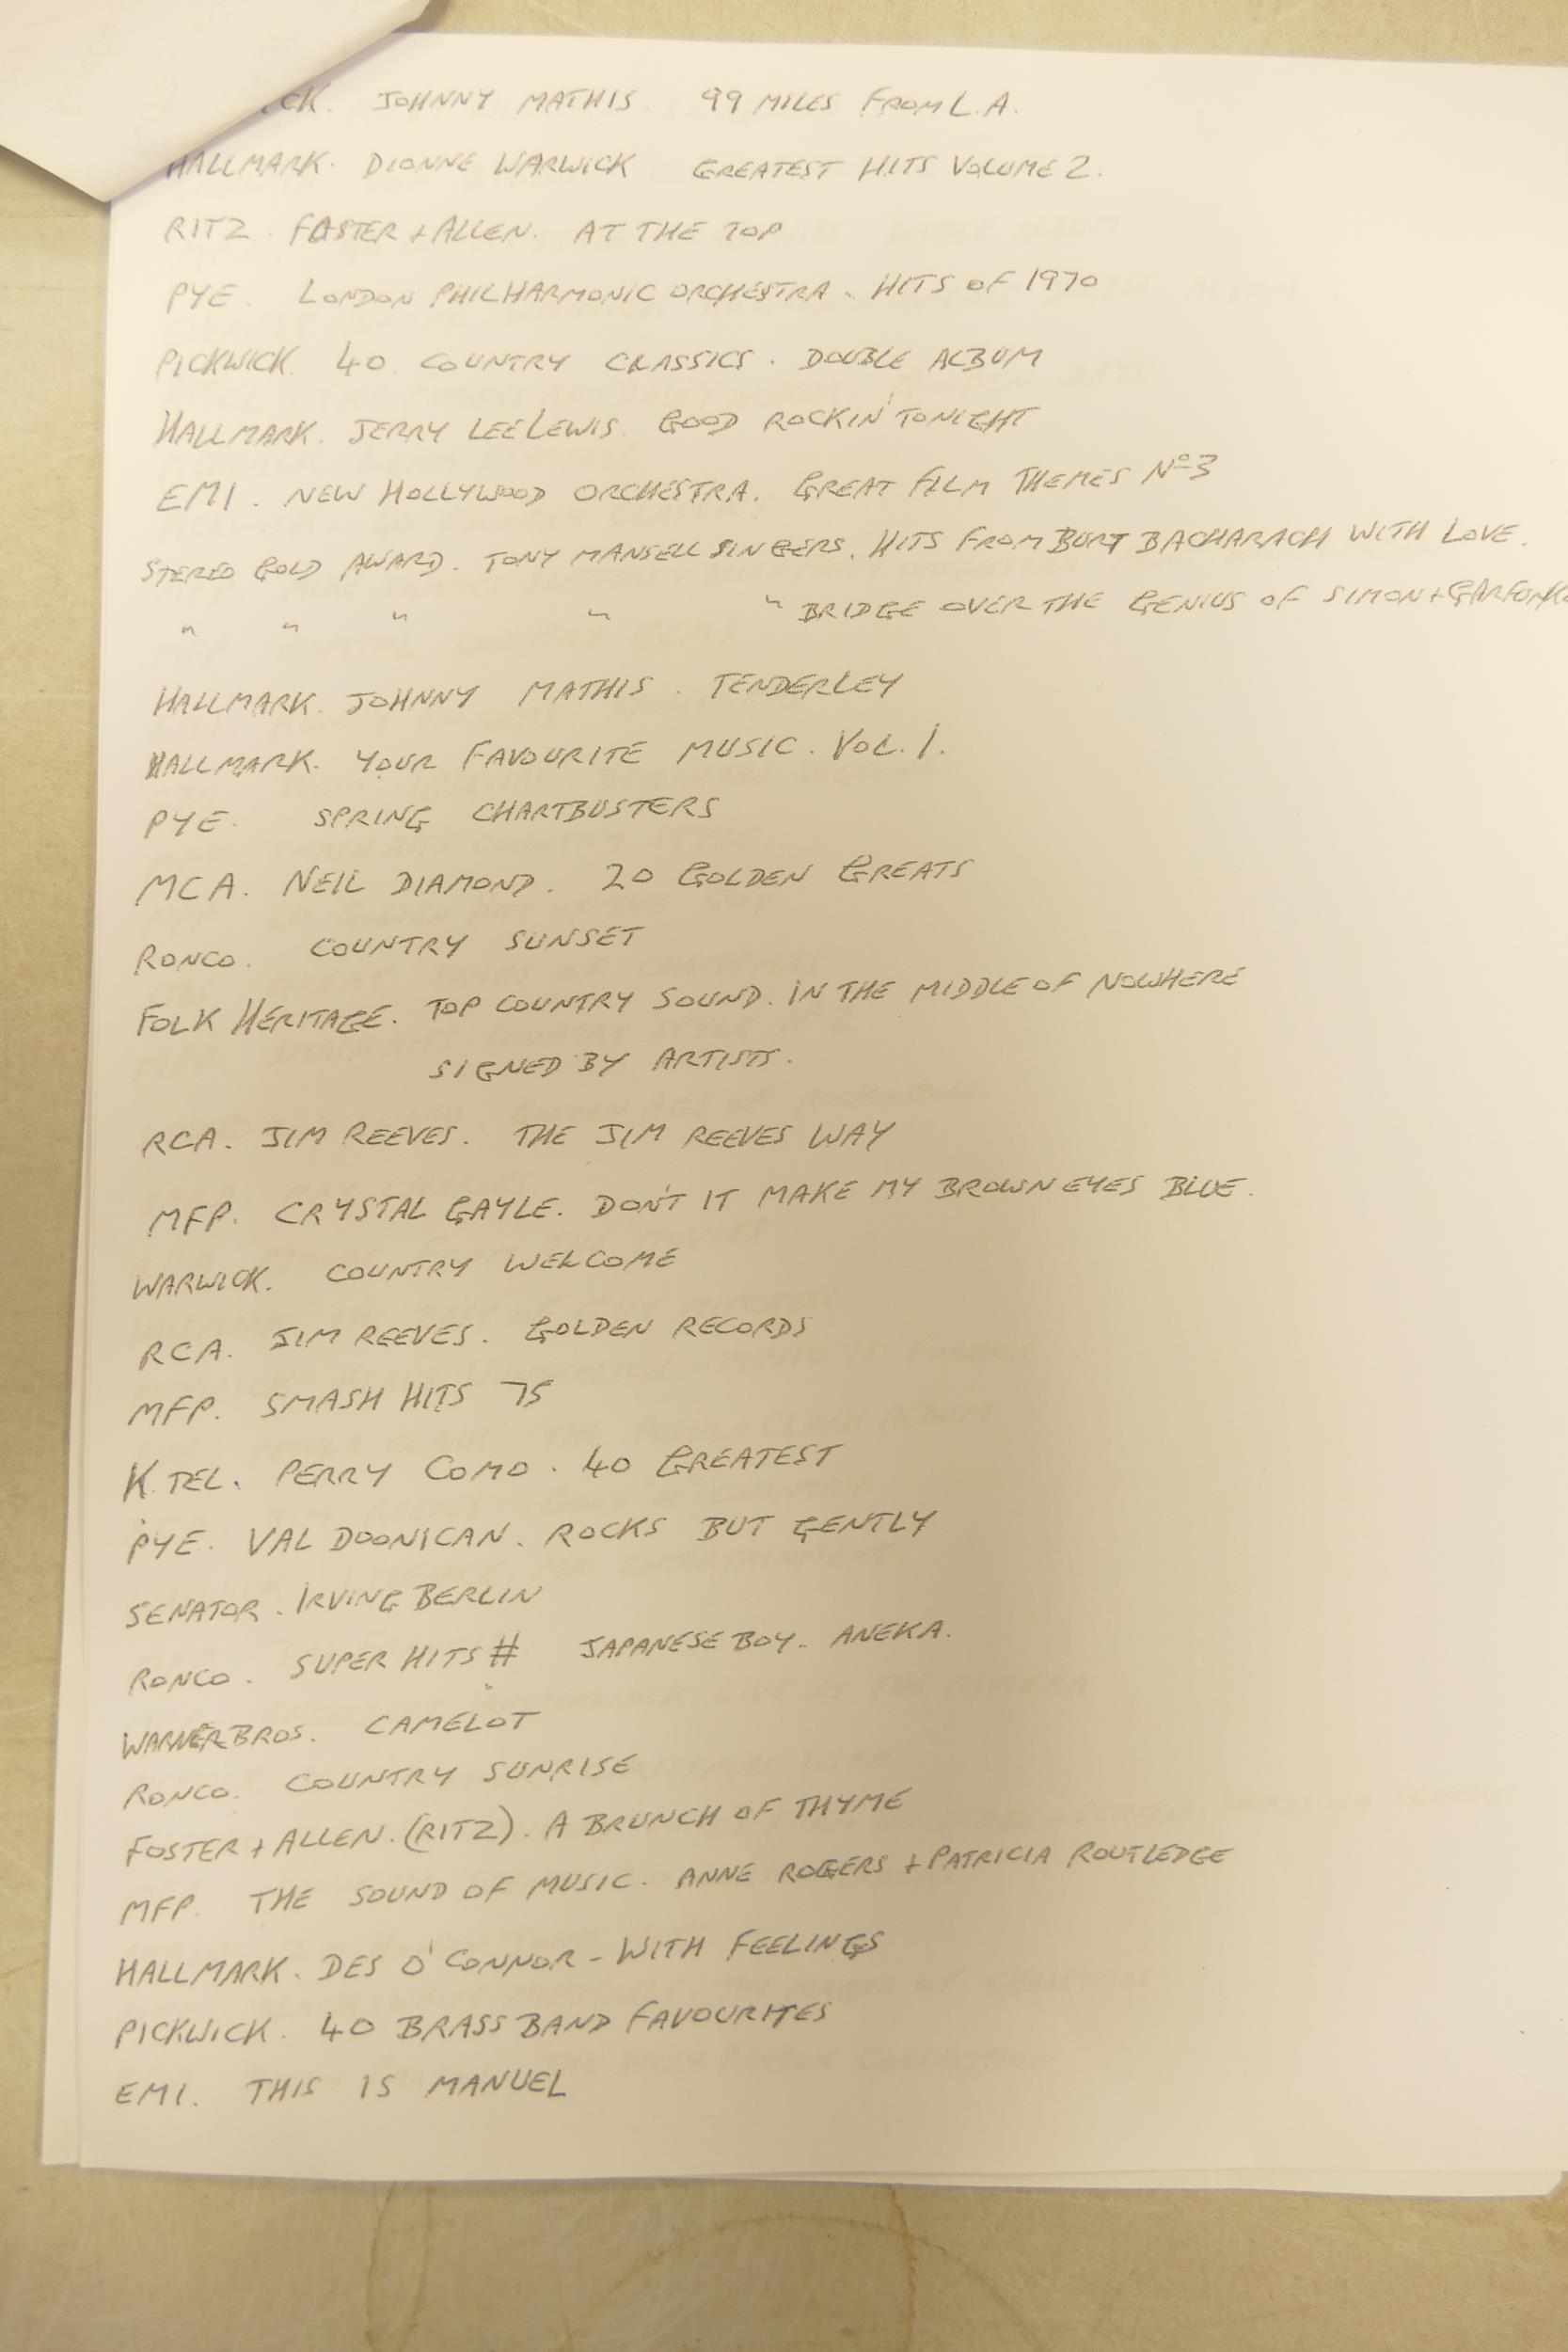 CK. JOHNNY MATHIS. 99 MILES FROM L.A.
HALLMARK. DIONNE WARWICK GREATEST HITS VOLUME 2.
RITZ. FOSTER + ALLEN. AT THE TOP
PYE. LONDON PHILHARMONIC ORCHESTRA. HITS OF 1970
PICKWICK. 40 COUNTRY CLASSICS. DOUBLE ALBUM
HALLMARK. JERRY LEE LEWIS. GOOD ROCKIN' TONIGHT
EMI. NEW HOLLYWOOD ORCHESTRA. GREAT FILM THEMES Nº 3
STEREO GOLD AWARD. TONY MANSELL SINGERS. HITS FROM BURT BACHARACH WITH LOVE.
" " " " " BRIDGE OVER THE GENIUS OF SIMON +
HALLMARK. JOHNNY MATHIS. TENDERLEY
HALLMARK. YOUR FAVOURITE MUSIC. VOL. 1.
PYE. SPRING CHARTBUSTERS
MCA. NEIL DIAMOND. 20 GOLDEN GREATS
RONCO. COUNTRY SUNSET
FOLK HERITAGE. TOP COUNTRY SOUND. IN THE MIDDLE OF NOWHERE
SIGNED BY ARTISTS.
RCA. JIM REEVES. THE JIM REEVES WAY
MFP. CRYSTAL GAYLE. DON'T IT MAKE MY BROWN EYES BLUE.
WARWICK. COUNTRY WELCOME
RCA. JIM REEVES. GOLDEN RECORDS
MFP. SMASH HITS 75
K. TEL. PERRY COMO. 40 GREATEST
PYE. VAL DOONICAN. ROCKS BUT GENTLY
SENATOR. IRVING BERLIN
RONCO. SUPER HITS # JAPANESE BOY. ANEKA.
WARNER BROS. CAMELOT
RONCO. COUNTRY SUNRISE
FOSTER + ALLEN. (RITZ). A BRUNCH OF THYME
MFP. THE SOUND OF MUSIC. ANNE ROGERS + PATRICIA ROUTLEDGE
HALLMARK. DES O'CONNOR - WITH FEELINGS
PICKWICK. 40 BRASS BAND FAVOURITES
EMI. THIS IS MANUEL